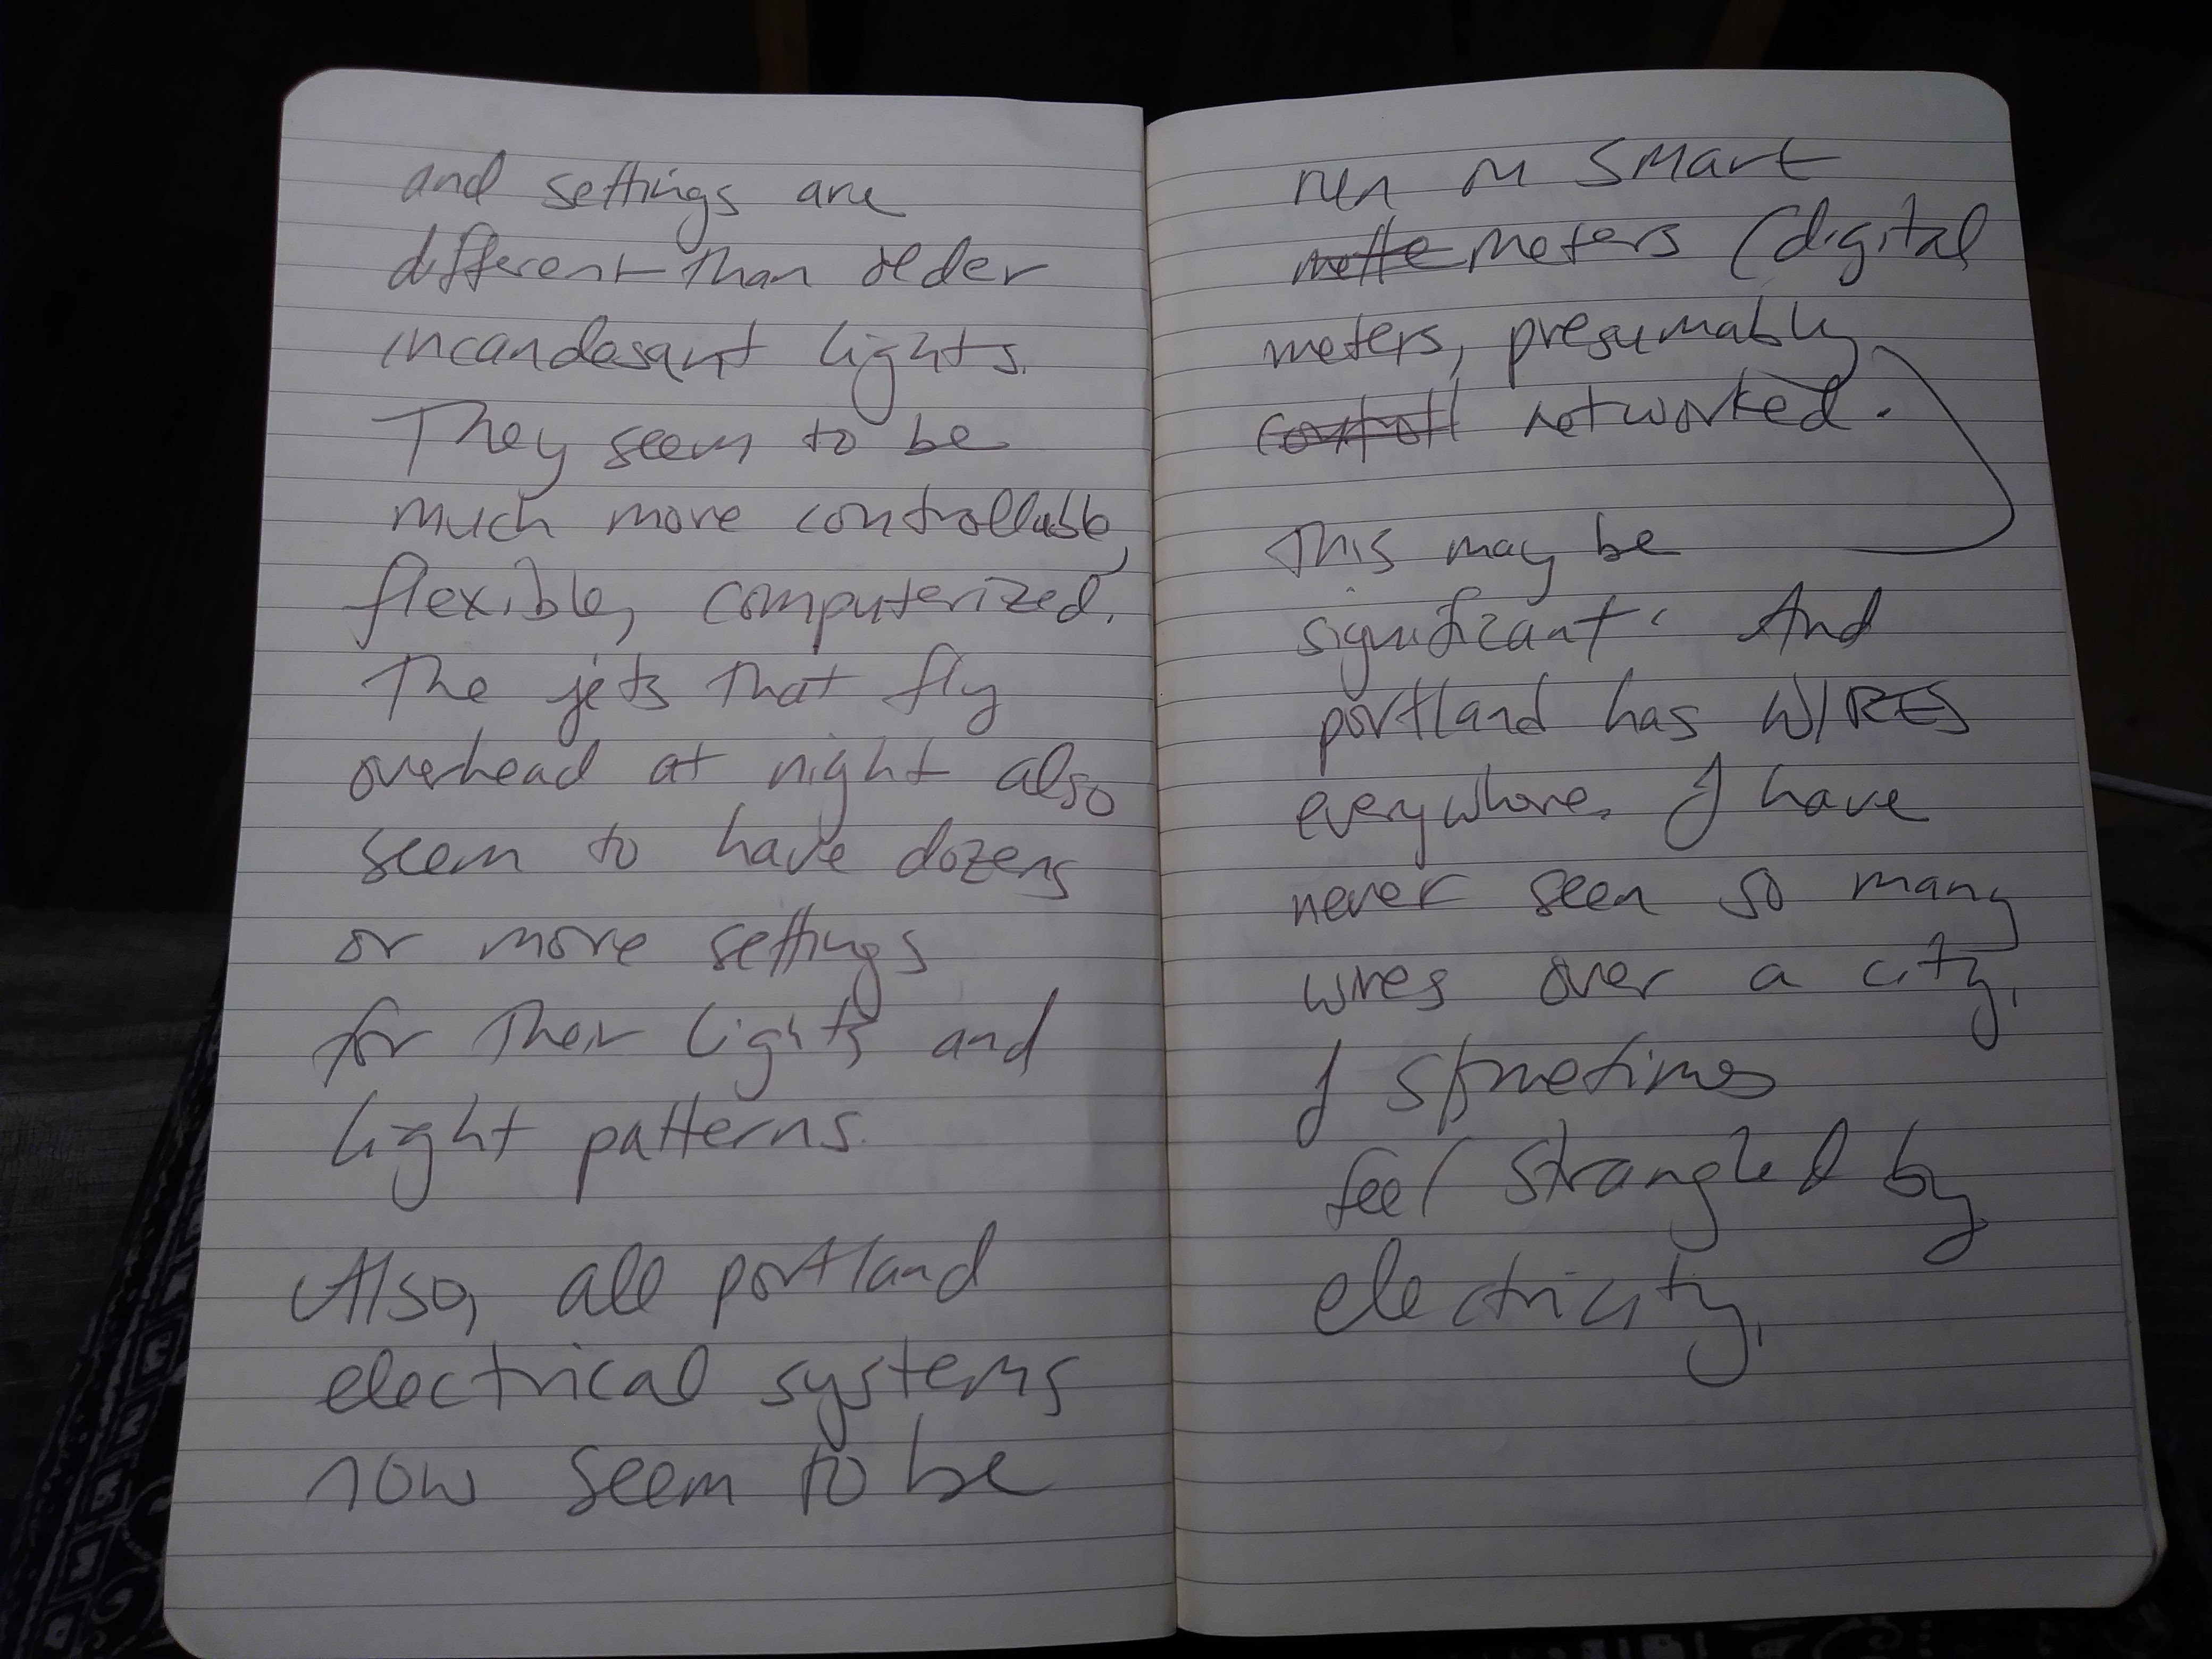 and settings are
different than older
incandesant lights.
They seem to be
much more controllable,
flexible, computerized.
The jets that fly
overhead at night also
seem to have dozens
or more settings
for their lights and
light patterns.
Also, all portland
electrical systems
now seem to be
run on smart
meters (digital
meters, presumably
networked.
This may be
significant. And
portland has WIRES
everywhere. I have
never seen so many
wires over a city.
I sometimes
feel strangled by
electricity.